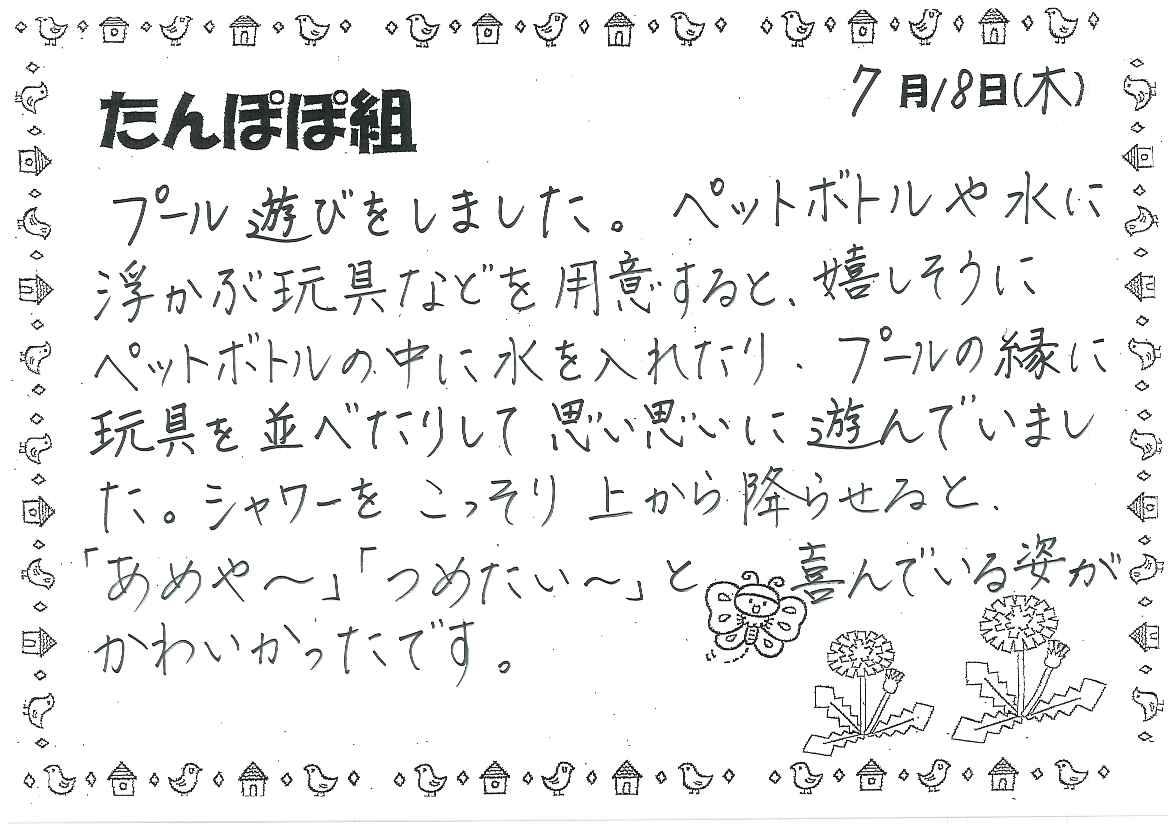 7月18日(木)
たんぽぽ組
プール遊びをしました。ペットボトルや水に
浮かぶ玩具などを用意すると、嬉しそうに
ペットボトルの中に水を入れたり、プールの縁に
玩具を並べたりして思い思いに遊んでいまし
た。シャワーをこっそり上から降らせると、
「あめや〜」「つめたい〜」と喜んでいる姿が
かわいかったです。